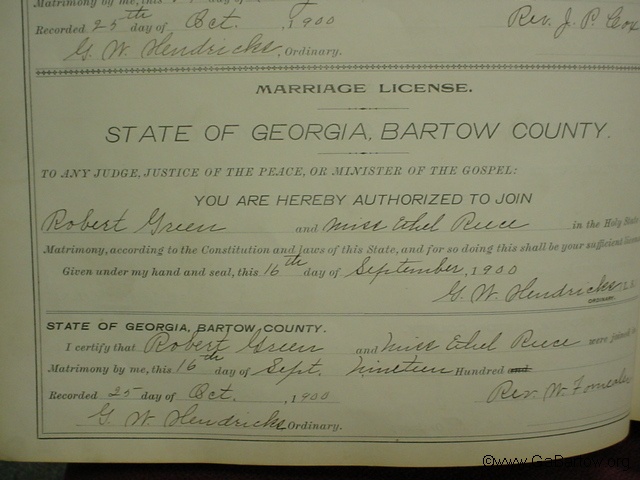 Matrimony by me, this day of
Recorded 25th day of Oct. , 1900 Rev. J. P. Cox
G. W. Hendricks. Ordinary.
MARRIAGE LICENSE.
STATE OF GEORGIA, BARTOW COUNTY.
TO ANY JUDGE, JUSTICE OF THE PEACE, OR MINISTER OF THE GOSPEL:
YOU ARE HEREBY AUTHORIZED TO JOIN
Robert Green and Miss Ethel Reece in the Holy State
Matrimony, according to the Constitution and laws of this State, and for so doing this shall be your sufficient license
Given under my hand and seal, this 16th day of September, 1900
G. W. Hendricks
ORDINARY.
STATE OF GEORGIA, BARTOW COUNTY.
I certify that Robert Green and Miss Ethel Reece were joined in
Matrimony by me, this 16th day of Sept. nineteen Hundred and
Recorded 25 day of Oct. , 1900 Rev. W.
G. W. Hendricks Ordinary.
©www.GaBartow.org